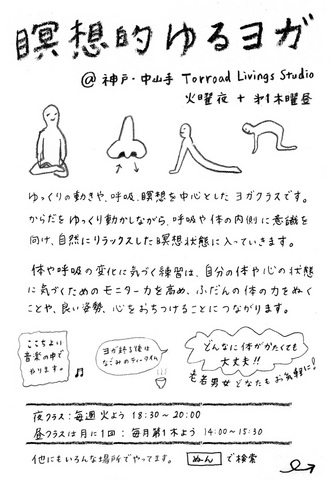 瞑想的ゆるヨガ
@ 神戸・中山手 Torroad Livings Studio
火曜夜 + 第1木曜昼
ゆっくりの動きや、呼吸、瞑想を中心とした ヨガクラスです。
からだをゆっくり動かしながら、呼吸や体の内側に意識を
向け、自然にリラックスした瞑想状態に入っていきます。
体や呼吸の変化に気づく練習は、自分の体や心の状態
に気づくためのモニター力を高め、ふだんの体の力をぬく
ことや、良い姿勢、心をおちつけることにつながります。
ここちよい
音楽の中で
やります。
ヨガ終る後は
なごみのティータイム
どんなに体がかたくても
大丈夫!!
老若男女 どなたも お気軽に!
夜クラス: 毎週火よう 18:30〜20:00
昼クラスは月に1回: 毎月第1木よう 14:00〜15:30
他にもいろんな場所でやってます。 ぬん で検索